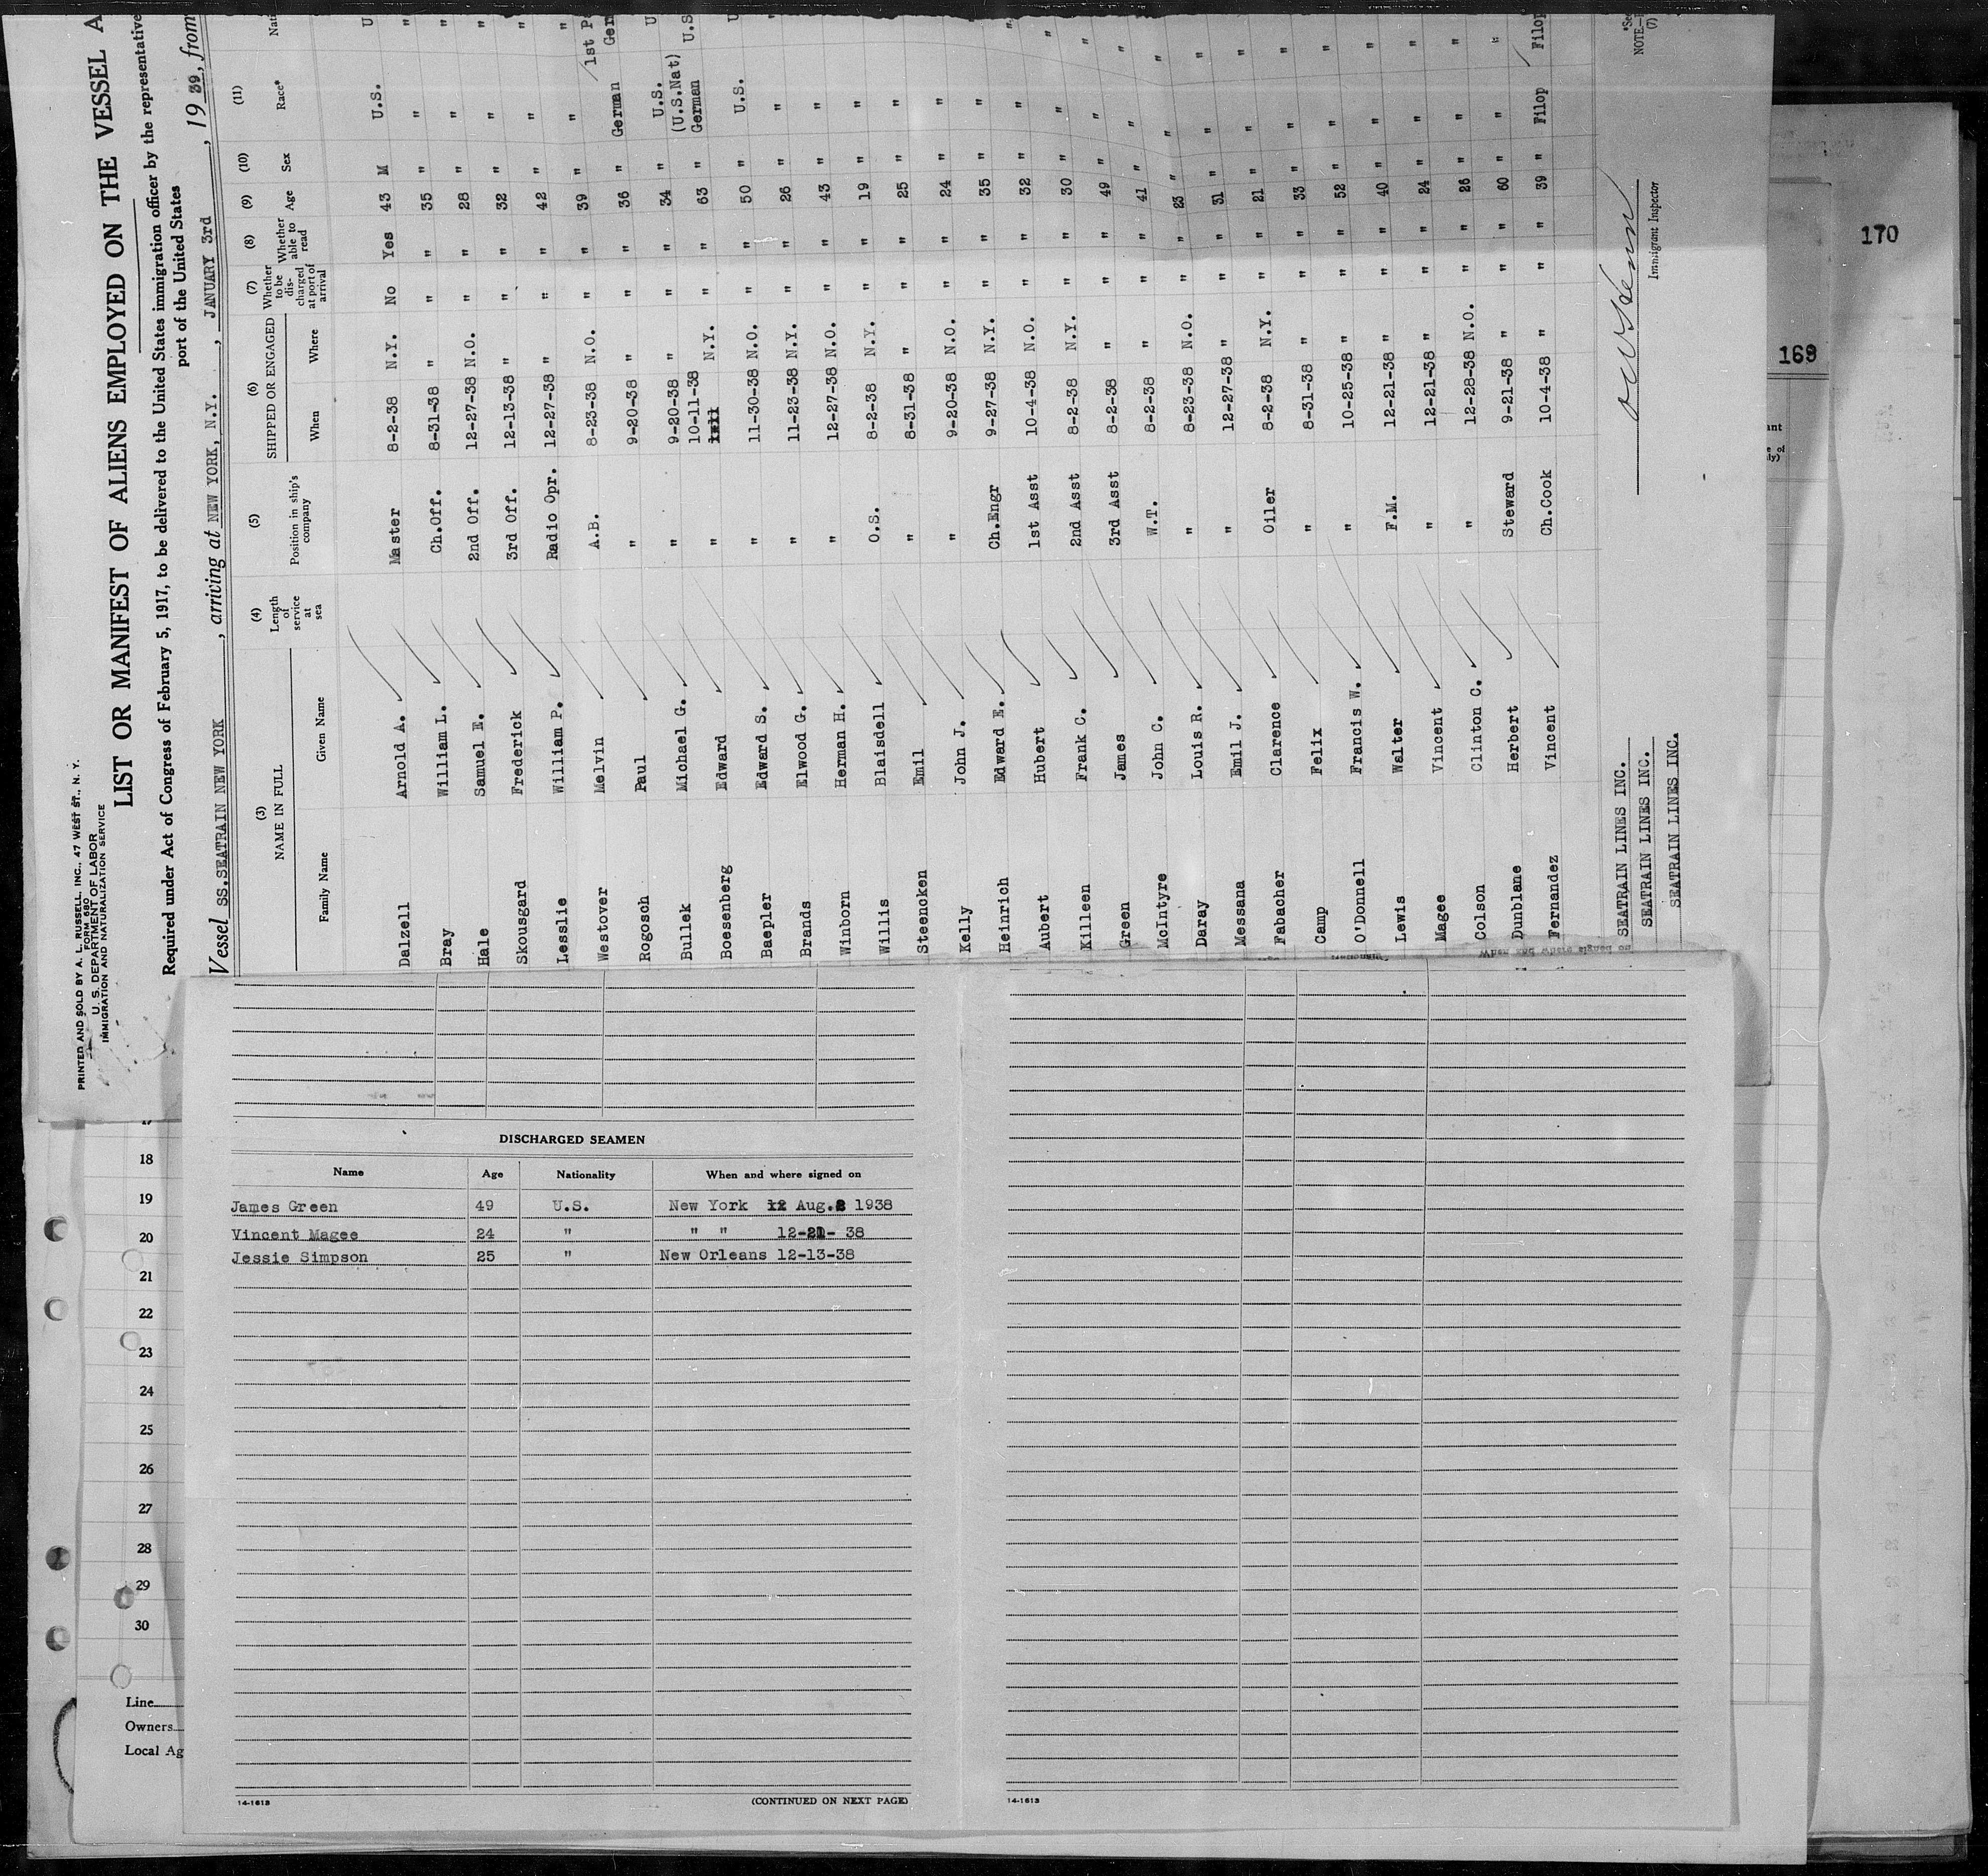 PRINTED AND SOLD BY A. L. RUSSELL, INC., 47 WEST ST., N. Y.
FORM 680
U. S. DEPARTMENT OF LABOR
IMMIGRATION AND NATURALIZATION SERVICE
LIST OR MANIFEST OF ALIENS EMPLOYED ON THE VESSEL A
Required under Act of Congress of February 5, 1917, to be delivered to the United States immigration officer by the representative
port of the United States
Vessel SS.SEATRAIN NEW YORK, arriving at NEW YORK, N.Y., JANUARY 3rd, 19 39, from
(3) (4) (5) (6) (7) (8) (9) (10) (11)
NAME IN FULL Length of service at sea Position in ship's company SHIPPED OR ENGAGED Whether to be discharged at port of arrival Whether able to read Age Sex Race* Nati
Family Name Given Name When Where
Dalzell Arnold A. Master 8-2-38 N.Y. No Yes 43 M U.S. U
Bray William L. Ch.Off. 8-31-38 " " " 35 " " "
Hale Samuel E. 2nd Off. 12-27-38 N.O. " " 28 " " "
Skousgard Frederick 3rd Off. 12-13-38 " " " 32 " " "
Lesslie William P. Radio Opr. 12-27-38 " " " 42 " " "
Westover Melvin A.B. 8-23-38 N.O. " " 39 " " "
Rogosch Paul " 9-20-38 " " " 36 " German 1st P Ger
Bullek Michael G. " 9-20-38 " " " 34 " U.S. U
Boesenberg Edward " 10-11-38 N.Y. " " 63 " (U.S.Nat) German U.S
Baepler Edward S. " 11-30-38 N.O. " " 50 " U.S. U
Brands Elwood G. " 11-23-38 N.Y. " " 26 " " "
Winborn Herman H. " 12-27-38 N.O. " " 43 " " "
Willis Blaisdell O.S. 8-2-38 N.Y. " " 19 " " "
Steencken Emil " 8-31-38 " " " 25 " " "
Kelly John J. " 9-20-38 N.O. " " 24 " " "
Heinrich Edward E. Ch.Engr 9-27-38 N.Y. " " 35 " " "
Aubert Hubert 1st Asst 10-4-38 N.O. " " 32 " " "
Killeen Frank C. 2nd Asst 8-2-38 N.Y. " " 30 " " "
Green James 3rd Asst 8-2-38 " " " 49 " " "
McIntyre John C. W.T. 8-2-38 " " " 41 " " "
Daray Louis R. " 8-23-38 N.O. " " 23 " " "
Messana Emil J. " 12-27-38 " " " 31 " " "
Fabacher Clarence Oiler 8-2-38 N.Y. " " 21 " " "
Camp Felix " 8-31-38 " " " 33 " " "
O'Donnell Francis W. " 10-25-38 " " " 52 " " "
Lewis Walter F.M. 12-21-38 " " " 40 " " "
Magee Vincent " 12-21-38 " " " 24 " " "
Colson Clinton C. " 12-28-38 N.O. " " 26 " " "
Dunblane Herbert Steward 9-21-38 " " " 60 " " "
Fernandez Vincent Ch.Cook 10-4-38 " " " 39 " Filop Filop
SEATRAIN LINES INC.
SEATRAIN LINES INC.
SEATRAIN LINES INC.
Immigrant Inspector
*See
NOTE.—
(7)
170
169
DISCHARGED SEAMEN
Name Age Nationality When and where signed on
James Green 49 U.S. New York Aug.2 1938
Vincent Magee 24 " " " 12-21- 38
Jessie Simpson 25 " New Orleans 12-13-38
14-1613 (CONTINUED ON NEXT PAGE)
14-1613
17
18
19
20
21
22
23
24
25
26
27
28
29
30
Line
Owners
Local Ag